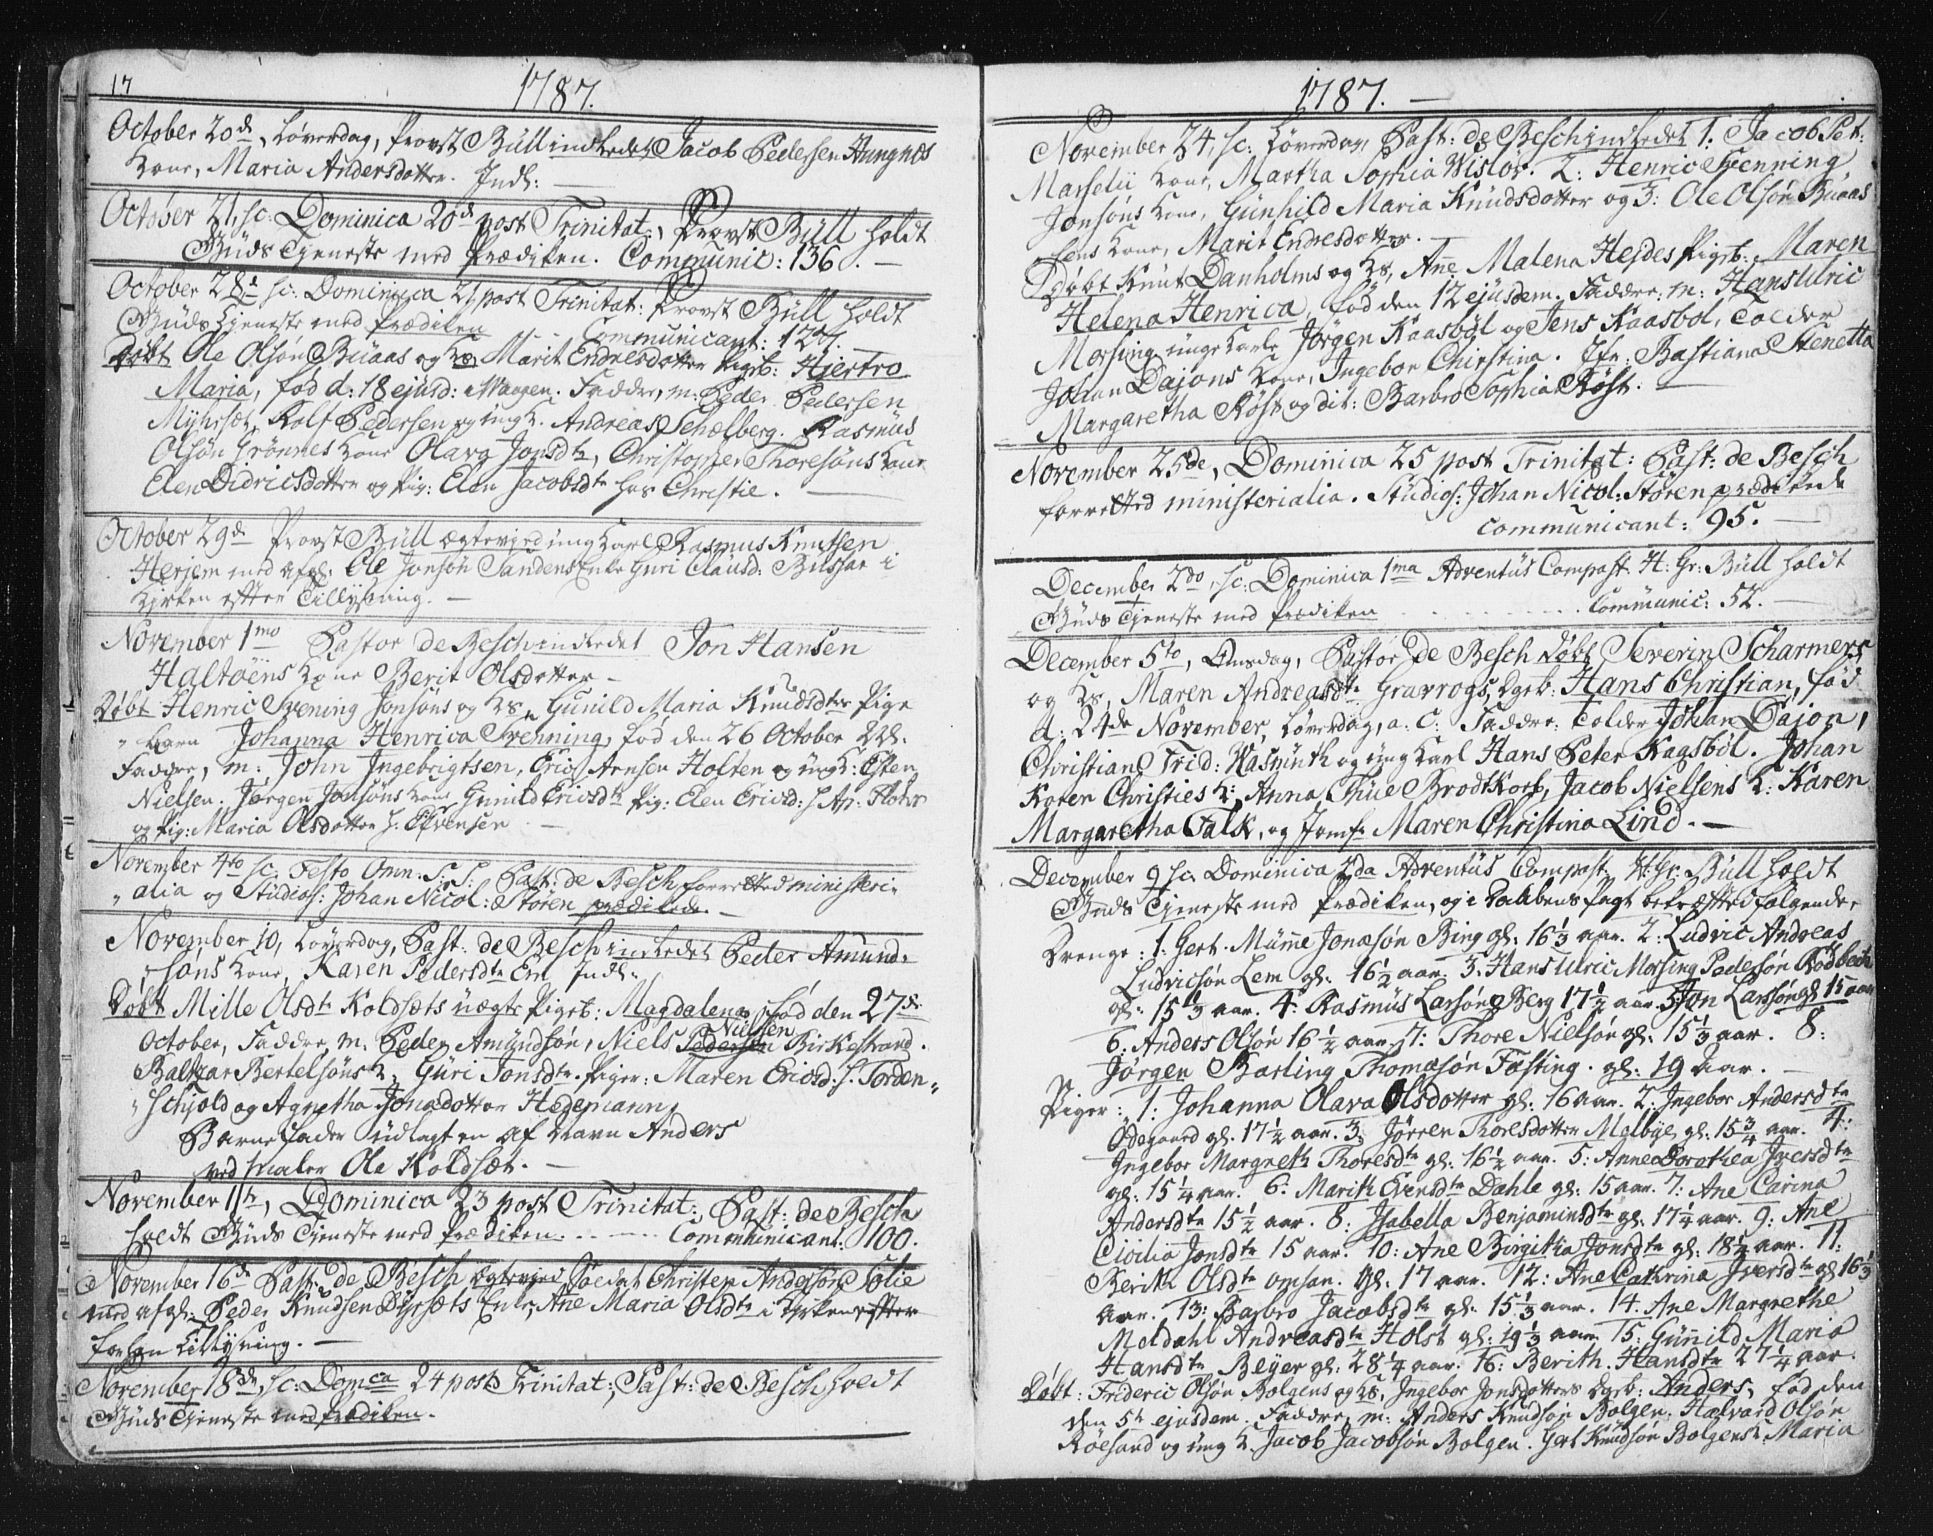 17
1787.
October 20de, Løverdag, Provst Büll indledet Jacob Pedersen Hungnes
Kone, Maria Andersdotter. Indl:
October 21, sc: Dominica 20de post Trinitat:, Provst Büll holdt
Guds Tjeneste med Prædiken. Communic: 136. —
October 28de sc: Dominica 21 post Trinitat: Provst Büll holdt
Guds Tjeneste med Prædiken Communicant: 127.
Døbt Ole Olsøn Büaas og Ks Marit Endresdotter Pigeb: Hiertro
Maria, fød d: 18 ejusd: Faddre, m: Peder Pedersen
Myhrset, Rolf Pedersen og ung K. Andreas Schelberg. Rasmus
Olsøn Grønnes Kone Olava Jonsdtr, Christopher Thoresøns Kone
Elen Didricsdotter og Pig: Elen Jacobsdtr hos Christie. —
October 29de Provst Büll ægteviede ung Karl Rasmus Knutsen
Herjem med afgl: Ole Jonsøn Sandens Enke Guri Clausd: Bussar i
Kirken efter Tillysning. —
November 1mo Pastor de Besch indledet Jon Hansen
Haltøiens Kone Berit Olsdotter —
Døbt Henric Svening Jonsøns og Ks, Gunild Maria Knudsdtrs Pige
barn Johanna Henrica Svenning, fød den 26 October
Faddre, m: John Ingebrigtsen, Eric Arnsen Holten og ung K: Esten
Nielsen. Jørgen Jonsøns Kone Gunild Ericsdtr Pig: Elen Ericsd: h.
og Pig: Maria Olsdotter h. —
November 4to sc: Festo Omn: S:S: Past: de Besch forretted ministeri-
alia og Studios: Johan Nicol: Støren prædikede. —
November 10, Løverdag, Past: de Besch indledet Peder Amund-
søns Kone, Karen Pedersdtr Indl.
Døbt Mille Olsdtr Koldsæts uægte Pigeb: Magdalena, fød den 27de
October, Faddre, m. Peder Amundsøn, Niels Pedersen Nielsen Birkestrand.
Baltzar Bertelsøns K, Guri Jonsdtr. Piger: Maren Ericsd: h. Torden-
schjold og Agnetha Jonadotter Hegemann,
Barnefader udlagt en af Navn Anders
ved maler Ole Koldsæt. —
November 11te, Dominica 23 post Trinitat:, Past: de Besch
holdt Guds Tjeneste med Prædiken. Communicant: 100.
November 16de Past: de Besch ægteviede Soldat Christen Andersøn Solie
med afgl: Peder Knudsen Dyrsæts Enke, Ane Maria Olsdtr i Kirken efter
Tillysning. —
November 18de, sc: Domca 24 post Trinitat:, Past: de Besch holdt
Guds Tjeneste med Prædiken.
1787. —
November 24, sc: Løverdag, Past: de Besch indledet 1. Jacob Pet:
Marselii Kone, Martha Sophia Wisløv. 2: Henric Svenning
Jonsøns Kone, Gunhild Maria Knudsdotter og 3: Ole Olsøn Büaas
Kone, Marit Endresdotter. —
Døbt Knut Danholms og Ks, Ane Malena Hejdes Pigeb: Maren
Helena Henrica, fød den 12 ejusdem. Faddre: m: Hans Ulric
Morsing unge Karle Jørgen Kaasbøl og Jens Kaasbøl, Tolder
Johan Dajons Kone, Ingebor Christina. Jfr: Bastiana Stenetta
Margaretha Røst og dit: Barbro Sophia Røst. —
November 25de, Dominica 25 post Trinitat: Past: de Besch
forretted ministerialia. Studios: Johan Nicol: Støren prædikede
Communicant: 95. —
December 2do, sc: Dominica 1ma Adventus Compast. H: Gr: Büll holdt
Guds Tjeneste med Prædiken . . . . . . Communic: 52. —
December 5to, Onsdag, Pastor de Besch døbt Severin Scharmers
og Ks, Maren Andreasdtr Gravrogs, Dgeb: Hans Christian, fød
d: 24de November, Løverdag, a: c: Faddre: Tolder Johan Dajon,
Christian Frid: Wasmuth og ung Karl Hans Peter Kaasbøl. Johan
Koren Christies K: Anna Thue Brodtkorb, Jacob Nielsens K: Karen
Margaretha Falk, og Jomfr. Maren Christina Lind. —
December 9 sc: Dominica 2da Adventus Compast. H: Gr: Büll holdt
Guds Tjeneste med Prædiken, og i Daabens Pagt bekræfted følgende,
Drenge: 1. Gert Mumme Jonæsøn Bing gl: 16 1/3 aar. 2: Ludvic Andreas
Ludvicsøn Lem gl: 16 1/2 aar. 3. Hans Ulric Morsing Pedersøn Rodbech
gl: 15 1/3 aar. 4: Rasmus Larsøn Berg 17 1/2 aar. 5: Jon Larssøn gl 15 aar
6: Anders Olsøn 16 1/2 aar. 7: Thore Nielsøn gl: 15 1/3 aar. 8:
Jørgen Barling Thomæsøn Fasting. gl: 19 Aar. —
Piger: 1. Johanna Olava Olsdotter gl: 16 aar. 2: Ingebor Andersdtr
Ødegaard gl: 17 1/2 aar. 3. Jørren Thoresdotter Melbye, gl: 15 3/4 aar. 4:
Ingebor Margreth Thoresdtr gl: 16 1/2 aar. 5: Anne Dorothea Iversdtr
gl: 15 1/4 aar. 6: Marith Evensdtr Dahle gl: 15 aar. 7: Ane Carina
Andersdtr 15 1/2 aar. 8: Isabella Benjaminsdtr gl: 17 1/4 aar. 9: Ane
Cicilia Jonsdtr 15 aar. 10: Ane Birgitha Jonsdtr gl: 18 1/2 aar. 11:
Berith Olsdtr Omsan. gl: 17 aar. 12: Ane Cathrina Iversdtr gl 16 1/3
aar. 13: Barbro Jacobsdtr gl: 15 1/3 aar. 14: Ane Margrethe
Meldahl Andreasdtr Holst gl: 19 1/3 aar. 15: Gunild Maria
Hansdtr Beyer gl: 28 1/4 aar. 16: Berith Hansdtr 27 1/4 aar.
Døbt: Frideric Olsøn Bolgens og Ks, Ingebor Jonsdotters Dgeb: Anders, fød den
den 5te ejusdem. Faddre, m: Anders Knudsøn Bolgen. Halvard Olsøn
Røesand og ung K. Jacob Jacobsøn Bolgen. Gert Knudsøn Bolgens K. Maria